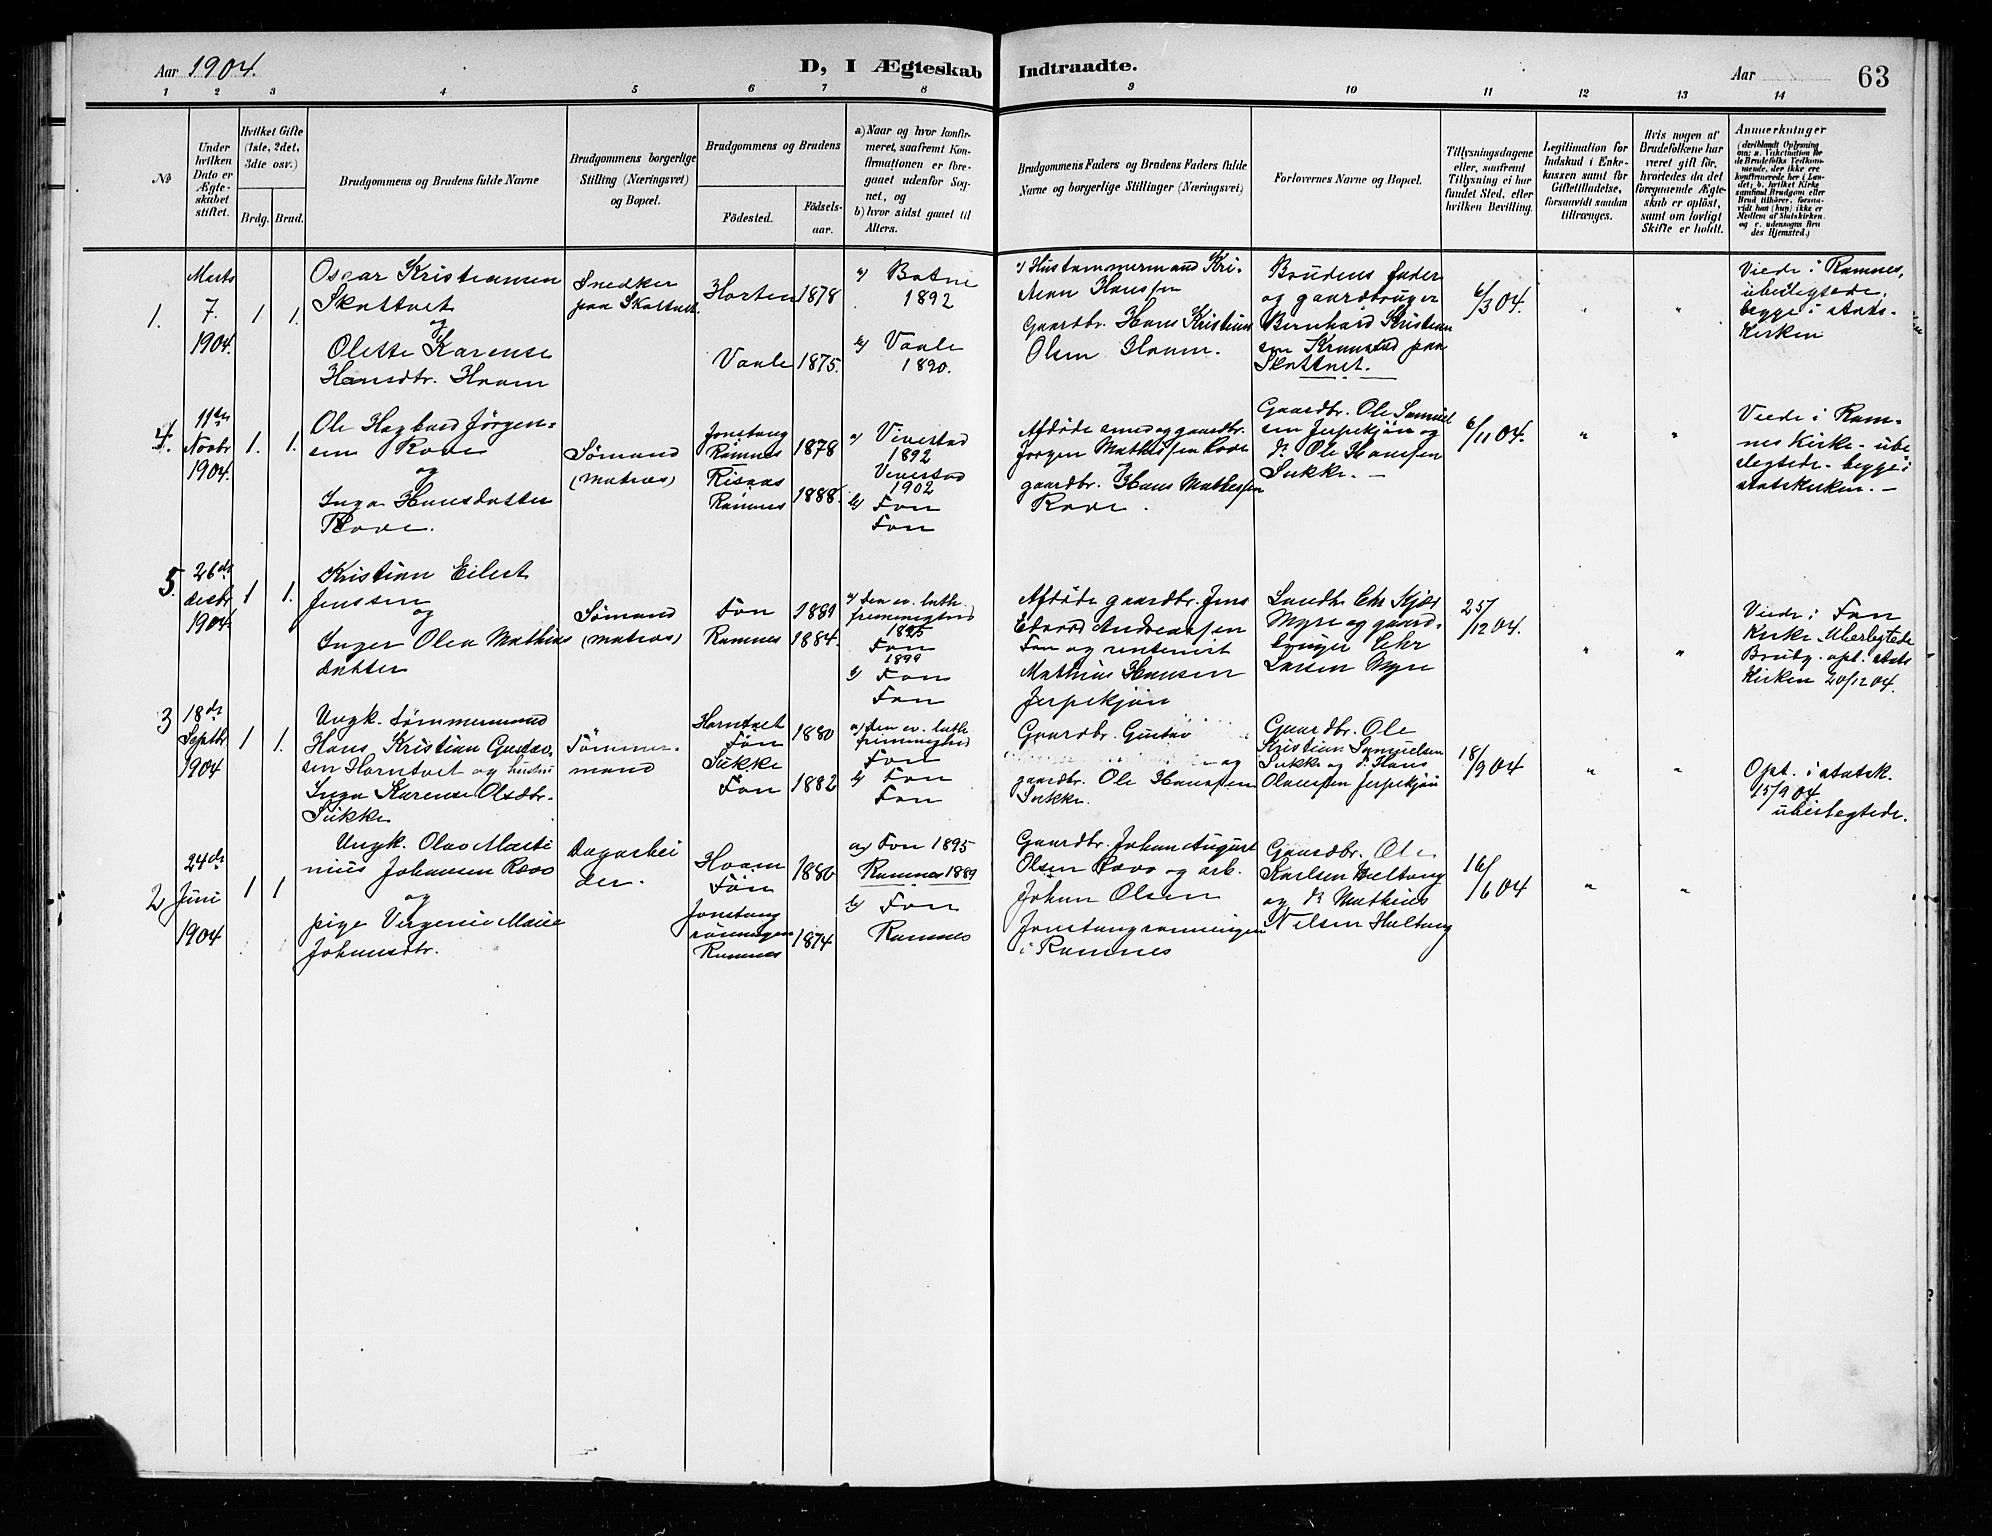 Aar 1904.
D, I Ægteskab Indtraadte.
Aar
63
1 2 3 4 5 6 7 8 9 10 11 12 13 14
No
Under hvilken Dato er Ægteskabet stiftet.
Hvilket Gifte (1ste, 2det, 3die osv.)
Brdg. Brud.
Brudgommens og Brudens fulde Navne
Brudgommens borgerlige Stilling (Næringsvei) og Bopæl.
Brudgommens og Brudens
Födested.
Födselsaar.
a) Naar og hvor konfirmeret, saafremt Konfirmationen er foregaaet udenfor Sognet, og
b) hvor sidst gaaet til Alters.
Brudgommens Faders og Brudens Faders fulde Navne og borgerlige Stillinger (Næringsvei)
Forlovernes Navne og Bopæl.
Tillysningsdagene eller, saafremt Tillysning ei har fundet Sted, efter hvilken Bevilling.
Legitimation for Indskud i Enkekassen samt for Giftetilladelse, forsaavidt saadan tiltrænges.
Hvis nogen af Brudefolkene har været gift før, hvorledes da det foregaaende Ægteskab er oplöst, samt om lovligt Skifte er holdt.
Anmærkninger (deriblandt Oplysning om: a. Vakcination for de Brudefolks Vedkommende, der ikke ere konfirmerede her i Landet; b. hvilket Kirkesamfund Brudgom eller Brud tilhörer, forsaavidt han (hun) ikke er Medlem af Statskirken. og c. udensogns Brudes Hjemsted.)
1.
Marts
7.
1904.
1 1.
Oscar Kristiansen
Skattvet
og
Olette Karense
Hansdtr. Hvam
Snedker
paa Skattvet.
Horten 1878
Vaale 1875.
a) Botne
1892
b) Vaale
1890.
Hustømmermand Kri-
stian Hanssen
Gaardbr. Hans Kristian
Olsen Hvam.
Brudens fader
og gaardbruger
Bernhard Kristian
sen paa
Skattvet.
6/3 04.
" "
Viede i Ramnes,
ubeslegtede,
begge i stats-
kirken
4.
11te
Novbr
1904.
1. 1.
Ole Hagbard Jørgen=
sen Rove
og
Inga Hansdatter
Rove.
Sømand
(matros)
Jonstang
Ramnes 1878
Risaas
Ramnes 1888.
a) Vivestad
1892
Vivestad
1902
b) Fon
Fon
Afdøde smed og gaardbr.
Jørgen Mathissen Rove
og
gaardbr. Hans Mathissen
Rove.
Gaardbr. Ole Samuel
sen Jerpekjøn og
do Ole Hanssen
Sukke. -
6/11 04.
" "
Viede i Ram-
nes Kirke - ube
slegtede - begge i
statskirken. -
5.
26de
decbr
1904.
1 1.
Kristian Eilert
Jenssen
og
Inger Olea Mathias
datter
Sømand
(matros)
Fon 1881
Ramnes 1884.
a) den ev. luth.
frimenighed
1895
Fon
1899
b) Fon
Fon
Afdøde gaardbr. Jens
Edvard Andreassen
Fon og
Mathias Hansen
Jerpekjøn
Landhr. Chr Kjær
Myre og gaard-
bruger Chr
Larsen Myre
25/12 04.
" "
Viede i Fon
Kirke. Ubeslegtede
Brudg. opt. i stats
kirken 20/12 04.
3
18de
Septbr.
1904
1 1.
Ungk. Tømmermand
Hans Kristian Gustav-
sen Horntvet og
Inga Karense Olsdtr.
Sukke
Tømmer-
mand
Horntvet
Fon 1880
Sukke
Fon 1882
a) den ev. luth
frimenighed
Fon
b) Fon
Fon
Gaardbr. Gustav
og
gaardbr. Ole Hanssen
Sukke.
Gaardbr. Ole
Kristian Samuelsen
Sukke og do Hans
Olaussen Jerpekjøn
18/9 04
" "
Opt. i statsk.
15/9 04
ubeslegtede.
2
24de
Juni
1904
1 1
Ungk. Olav Marti
nius Johansen Rove
og
pige Virgenie Marie
Johansdtr.
Dagarbei
der.
Hvam
Fon 1880
Jonstang
rønningen
Ramnes 1874
a) Fon 1895
Ramnes 1889
b) Fon
Ramnes
Gaardbr. Johan August
Olsen Rove og arb.
Johan Olsen
Jonstangrønningen
i Ramnes
Gaardbr. Ole
Karlsen Hultang
og do Mathias
Nilsen Hultang
16/6 04
" "